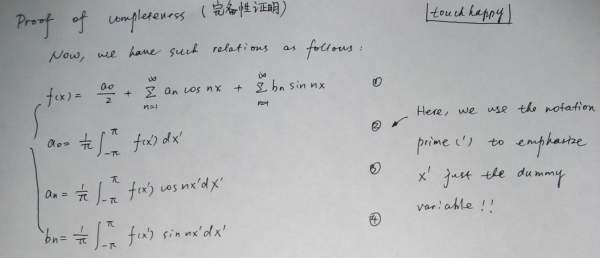 Proof of completeness (完备性证明)
|touchhappy|
Now, we have such relations as follows:
f(x) = a₀/2 + ∑_{n=1}^{∞} aₙ cos nx + ∑_{n=1}^{∞} bₙ sin nx ①
a₀ = 1/π ∫_{-π}^{π} f(x') dx' ②
aₙ = 1/π ∫_{-π}^{π} f(x') cos nx' dx' ③
bₙ = 1/π ∫_{-π}^{π} f(x') sin nx' dx' ④
Here, we use the notation
prime (') to emphasize
x' just the dummy
variable!!